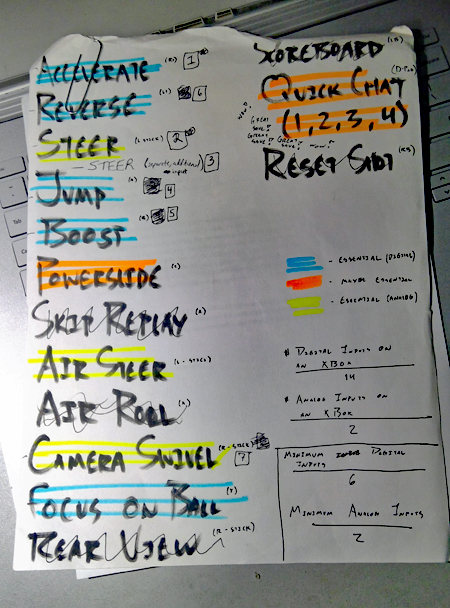 ACCELERATE (RT) 1
REVERSE (LT) 6
STEER (L-STICK) 2
- STEER (separate, additional input) 3
JUMP (A) 4
BOOST (B) 5
POWERSLIDE (X)
SKIP REPLAY
AIR STEER (L-STICK)
AIR ROLL (X)
CAMERA SWIVEL (R-STICK) 7
FOCUS ON BALL (Y)
REAR VIEW (R-STICK)
SCOREBOARD (LB)
QUICK CHAT (D-PAD)
(1, 2, 3, 4)
GREAT
SAVE!
RESET SHOT
- ESSENTIAL (DIGITAL)
- MAYBE ESSENTIAL
- ESSENTIAL (ANALOG)
# DIGITAL INPUTS ON
AN XBOX
14
# ANALOG INPUTS ON
AN XBOX
2
MINIMUM DIGITAL
INPUTS
6
MINIMUM ANALOG INPUTS
2